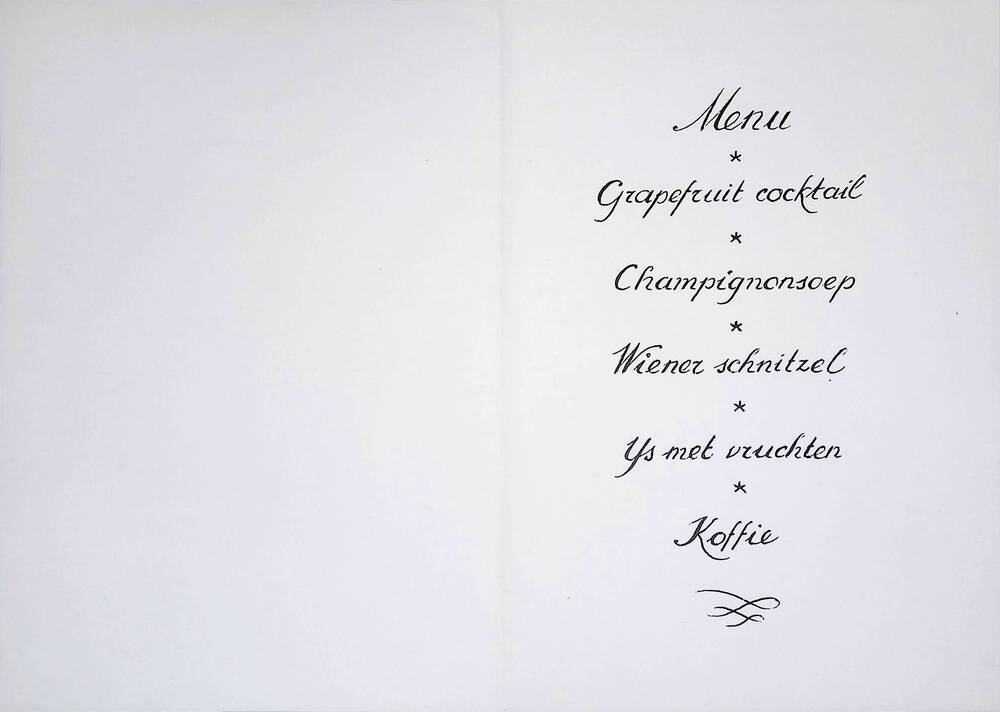 Menu
*
Grapefruit cocktail
*
Champignonsoep
*
Wiener schnitzel
*
Ys met vruchten
*
Koffie